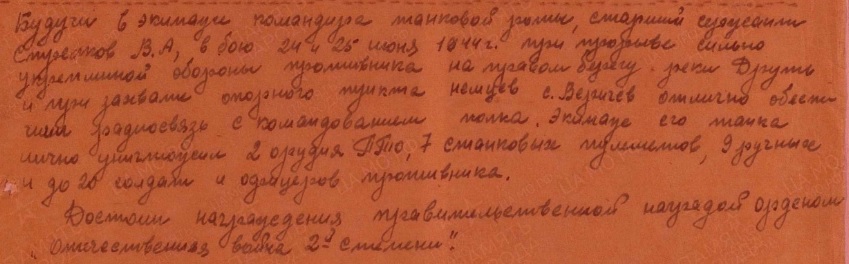 Будучи в экипаже командира танковой роты, старший сержант
Стрелков В.А, в бою 24 и 25 июня 1944г. при прорыве сильно
укреплиной обороны противника на правом берегу реки Друть
и при захвате опорного пункта немцев с. Веричев отлично обеспе
чил радиосвязь с командованием полка. Экипаж его танка
лично уничтожил 2 орудия ПТО, 7 станковых пулеметов, 9 ручных
и до 20 солдат и офицеров противника.
Достоин награждения правительственной наградой орденом
"Отечественная война 2й степени".